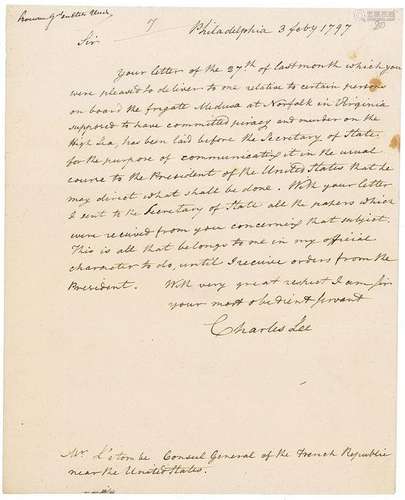 Philadelphia 3 feby 1797
Sir
Your letter of the 27th of last month which you
were pleased to deliver to me relative to certain persons
on board the frigate Medusa at Norfolk in Virginia
supposed to have committed piracy and murder on the
High Sea, has been laid before the Secretary of State
for the purpose of communicating it in the usual
course to the President of the United States that he
may direct what shall be done. With your letter
I sent to the Secretary of State all the papers which
were received from you concerning that subject.
This is all that belongs to me in my official
character to do, until I receive orders from the
President. With very great respect I am sir
your most obedient servant
Charles Lee
Mr. L'etombe Consul General of the French Republic
near the United States.